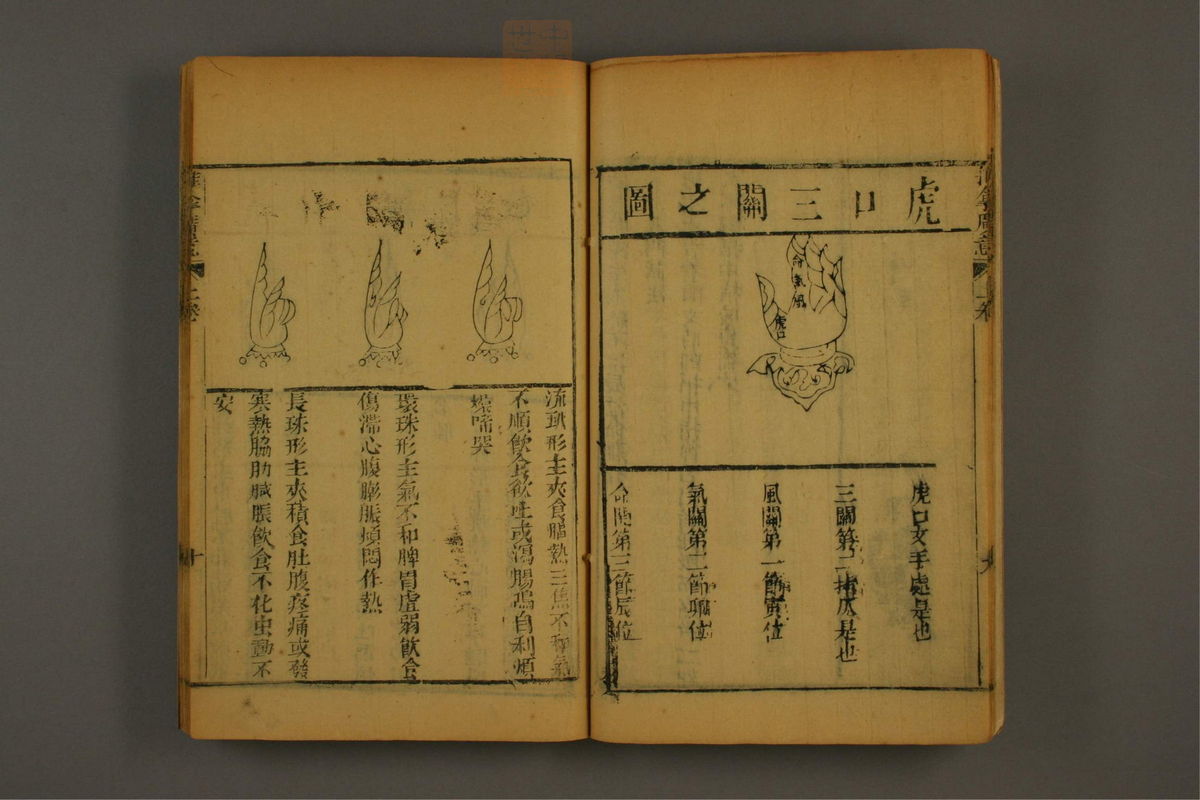 虎口三關之圖
命氣風
虎口
虎口叉手處是也
三關第二指爪是也
風關第一節寅位
氣關第二節卯位
命關第三節辰位
九
流珠形主夾食膈熱三焦不和氣
不順飲食欲吐或瀉腸鳴自利煩
燥啼哭
環珠形主氣不和脾胃虛弱飲食
傷滯心腹膨脹煩悶作熱
長珠形主夾積食肚腹疼痛或發
寒熱脇肋臟脹飲食不化虫動不
安
上卷
十